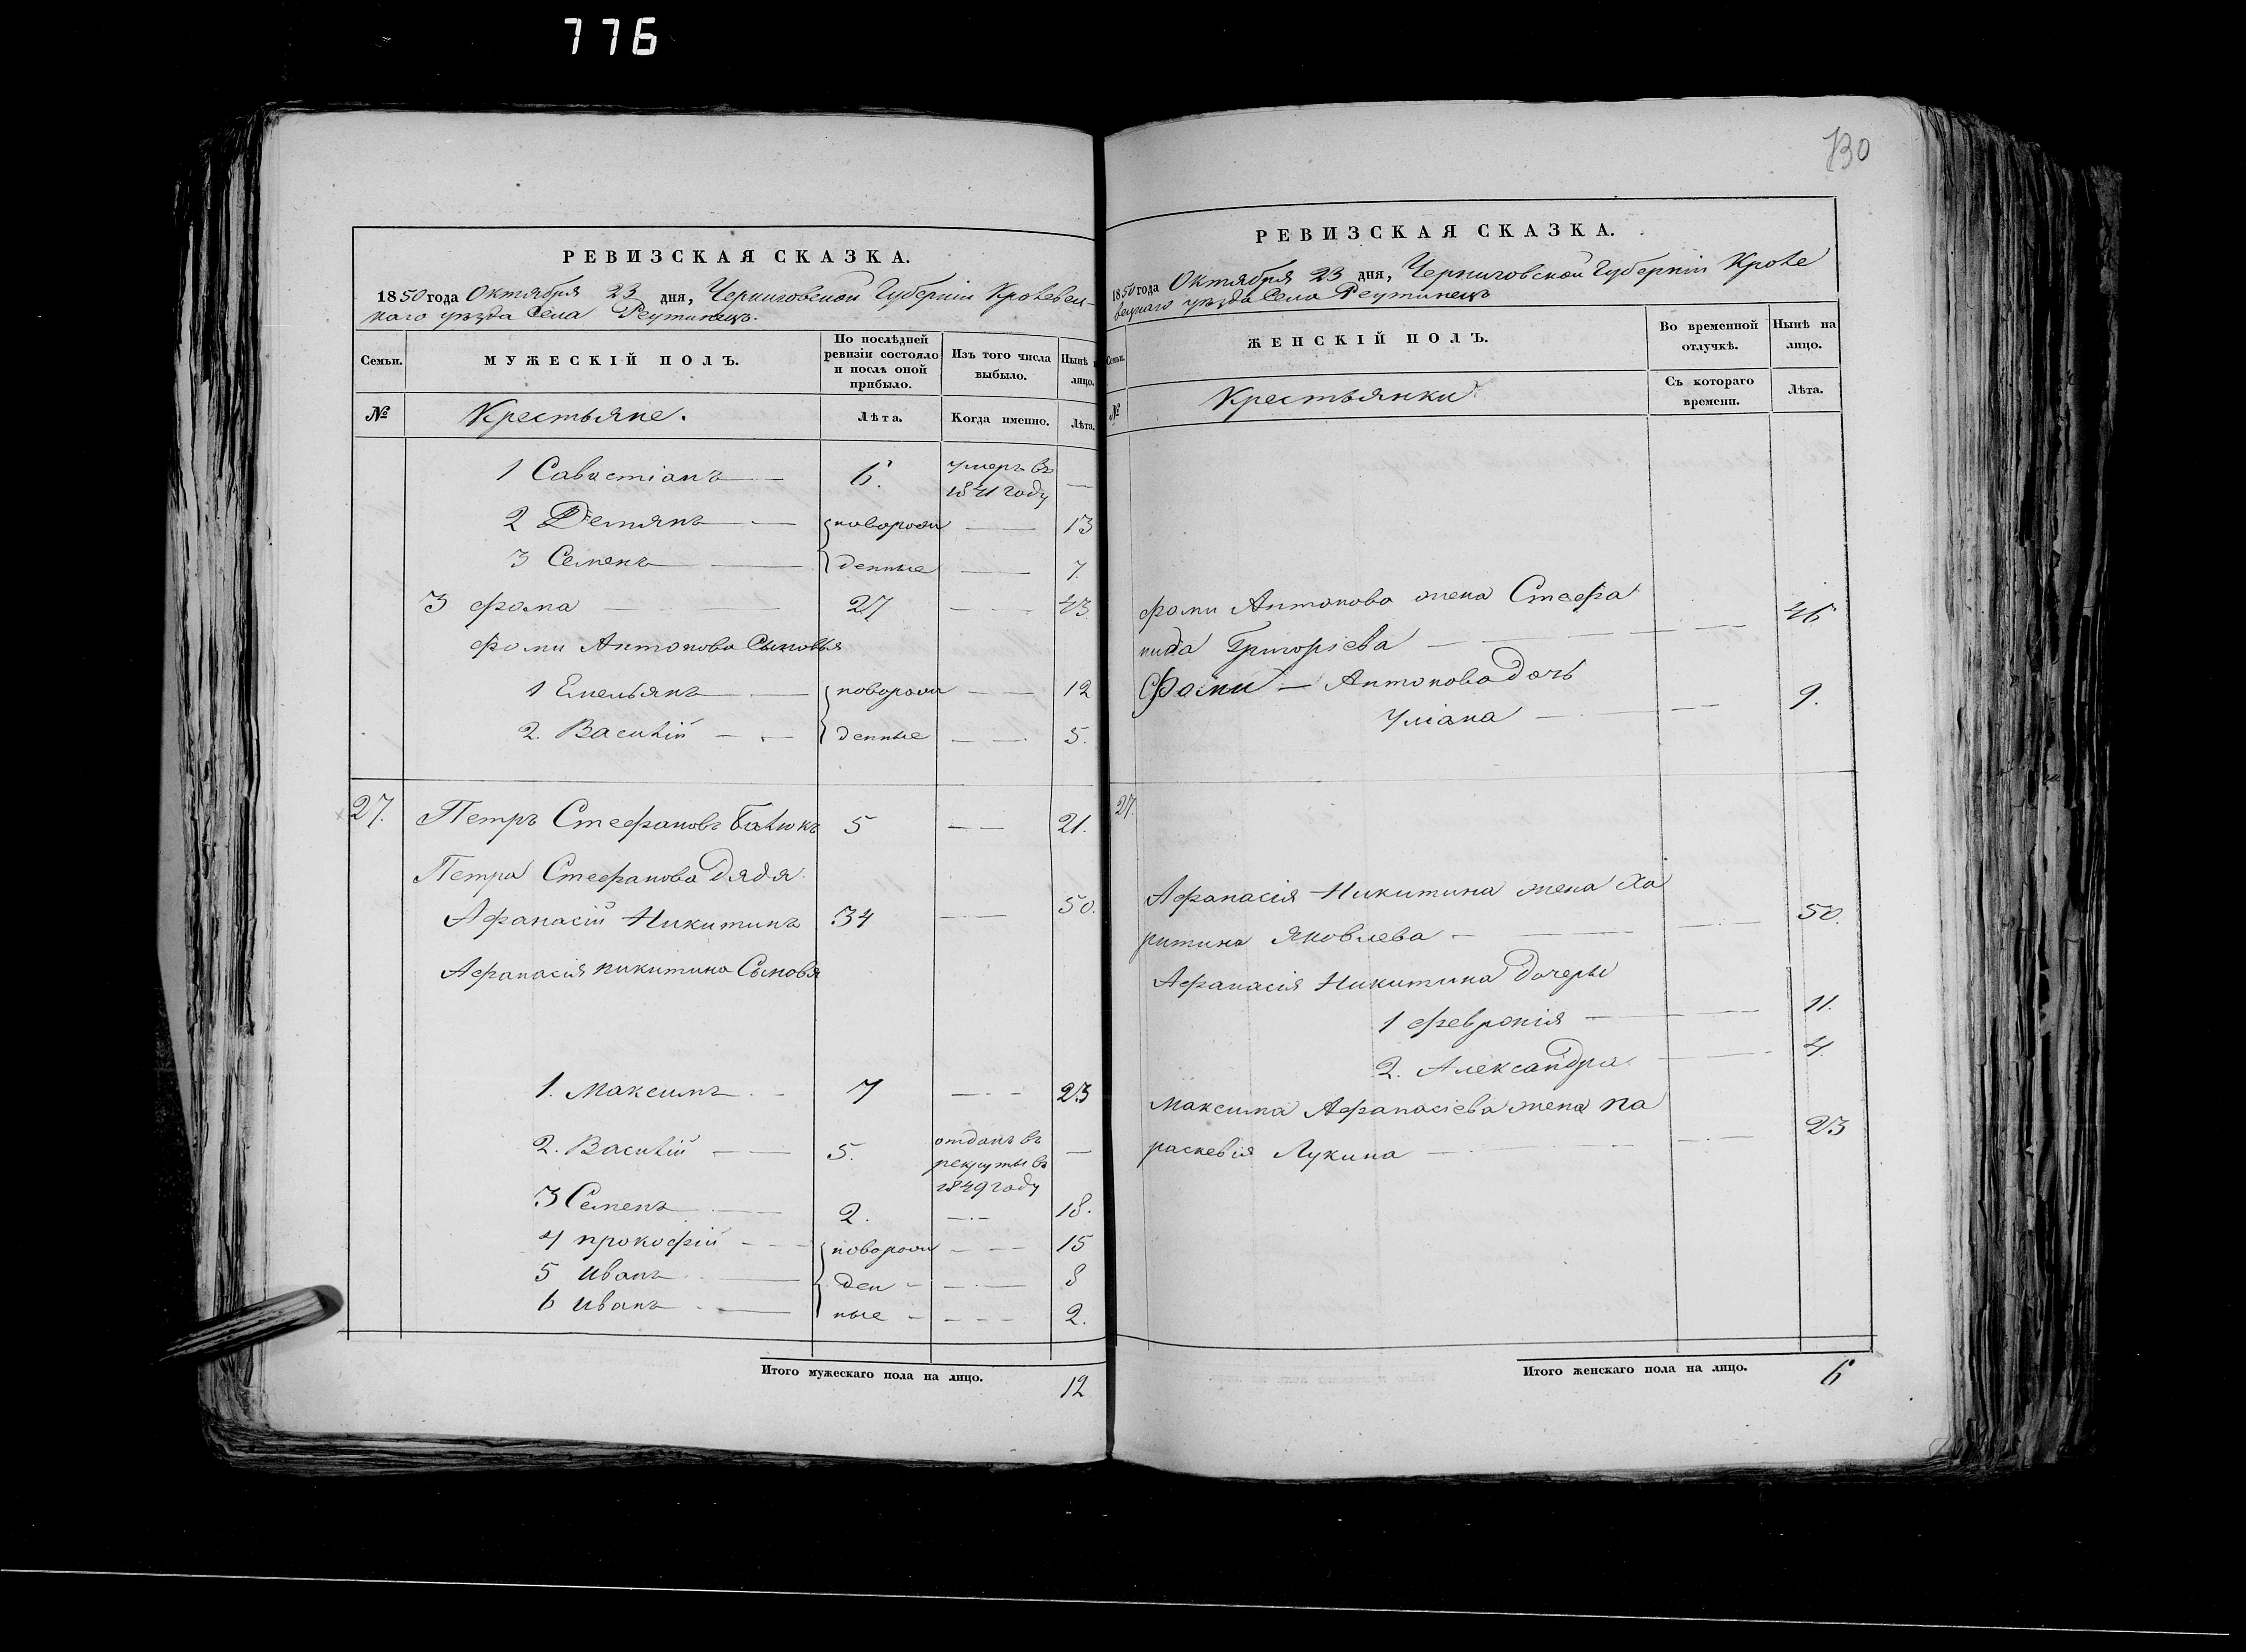 776
РЕВИЗСКАЯ СКАЗКА.
1850 года Октября 23 дня, Черниговской Губернiи Кролевец-
каго уѣзда Села Реутинецъ.
Семьи.
МУЖЕСКІЙ ПОЛЪ.
По послѣдней ревизіи состояло и послѣ оной прибыло.
Изъ того числа выбыло.
Нынѣ на лицо.
№
Крестьяне.
Лѣта.
Когда именно.
Лѣта.
1 Савостіанъ — 6. умеръ въ 1841 году —
2 Демянъ — новорож — 13
3 Семенъ — денные — 7.
3 Фома — 27 — 43.
Фомы Антонова Сыновья
1 Емельянъ — новорож — 12
2. Василій — денные — 5.
27. Петръ Стефановъ 5 — 21.
Петра Стефанова Дядя
Афанасій Никитинъ 34 — 50.
Афанасія Никитина Сыновя
1. Максимъ — 7 — 23
2. Василій — 5. отданъ въ рекруты въ 1849 году —
3 Семенъ — 2. — 18.
4 Прокофій — новорож — 15
5 Иванъ — ден — 8
6 Иванъ — ные — 2.
Итого мужескаго пола на лицо. 12
130
РЕВИЗСКАЯ СКАЗКА.
1850 года Октября 23 дня, Черниговской Губернiи Кроле
вецкаго уѣзда Села Реутинецъ
Семьи.
ЖЕНСКІЙ ПОЛЪ.
Во временной отлучкѣ.
Нынѣ на лицо.
№
Крестьянки.
Съ котораго времени.
Лѣта.
Фомы Антонова жена Стефа
нида Григоріева — 46
Фомы — Антонова Дочь
Уліана — 9.
27.
Афанасія Никитина жена Ха
ритина Яковлева — 50.
Афанасія Никитина Дочеры
1 Февронія — 11.
2. Александра — 4.
Максима Афанасіева жена Па
раскевія Лукина — 23
Итого женскаго пола на лицо. 6